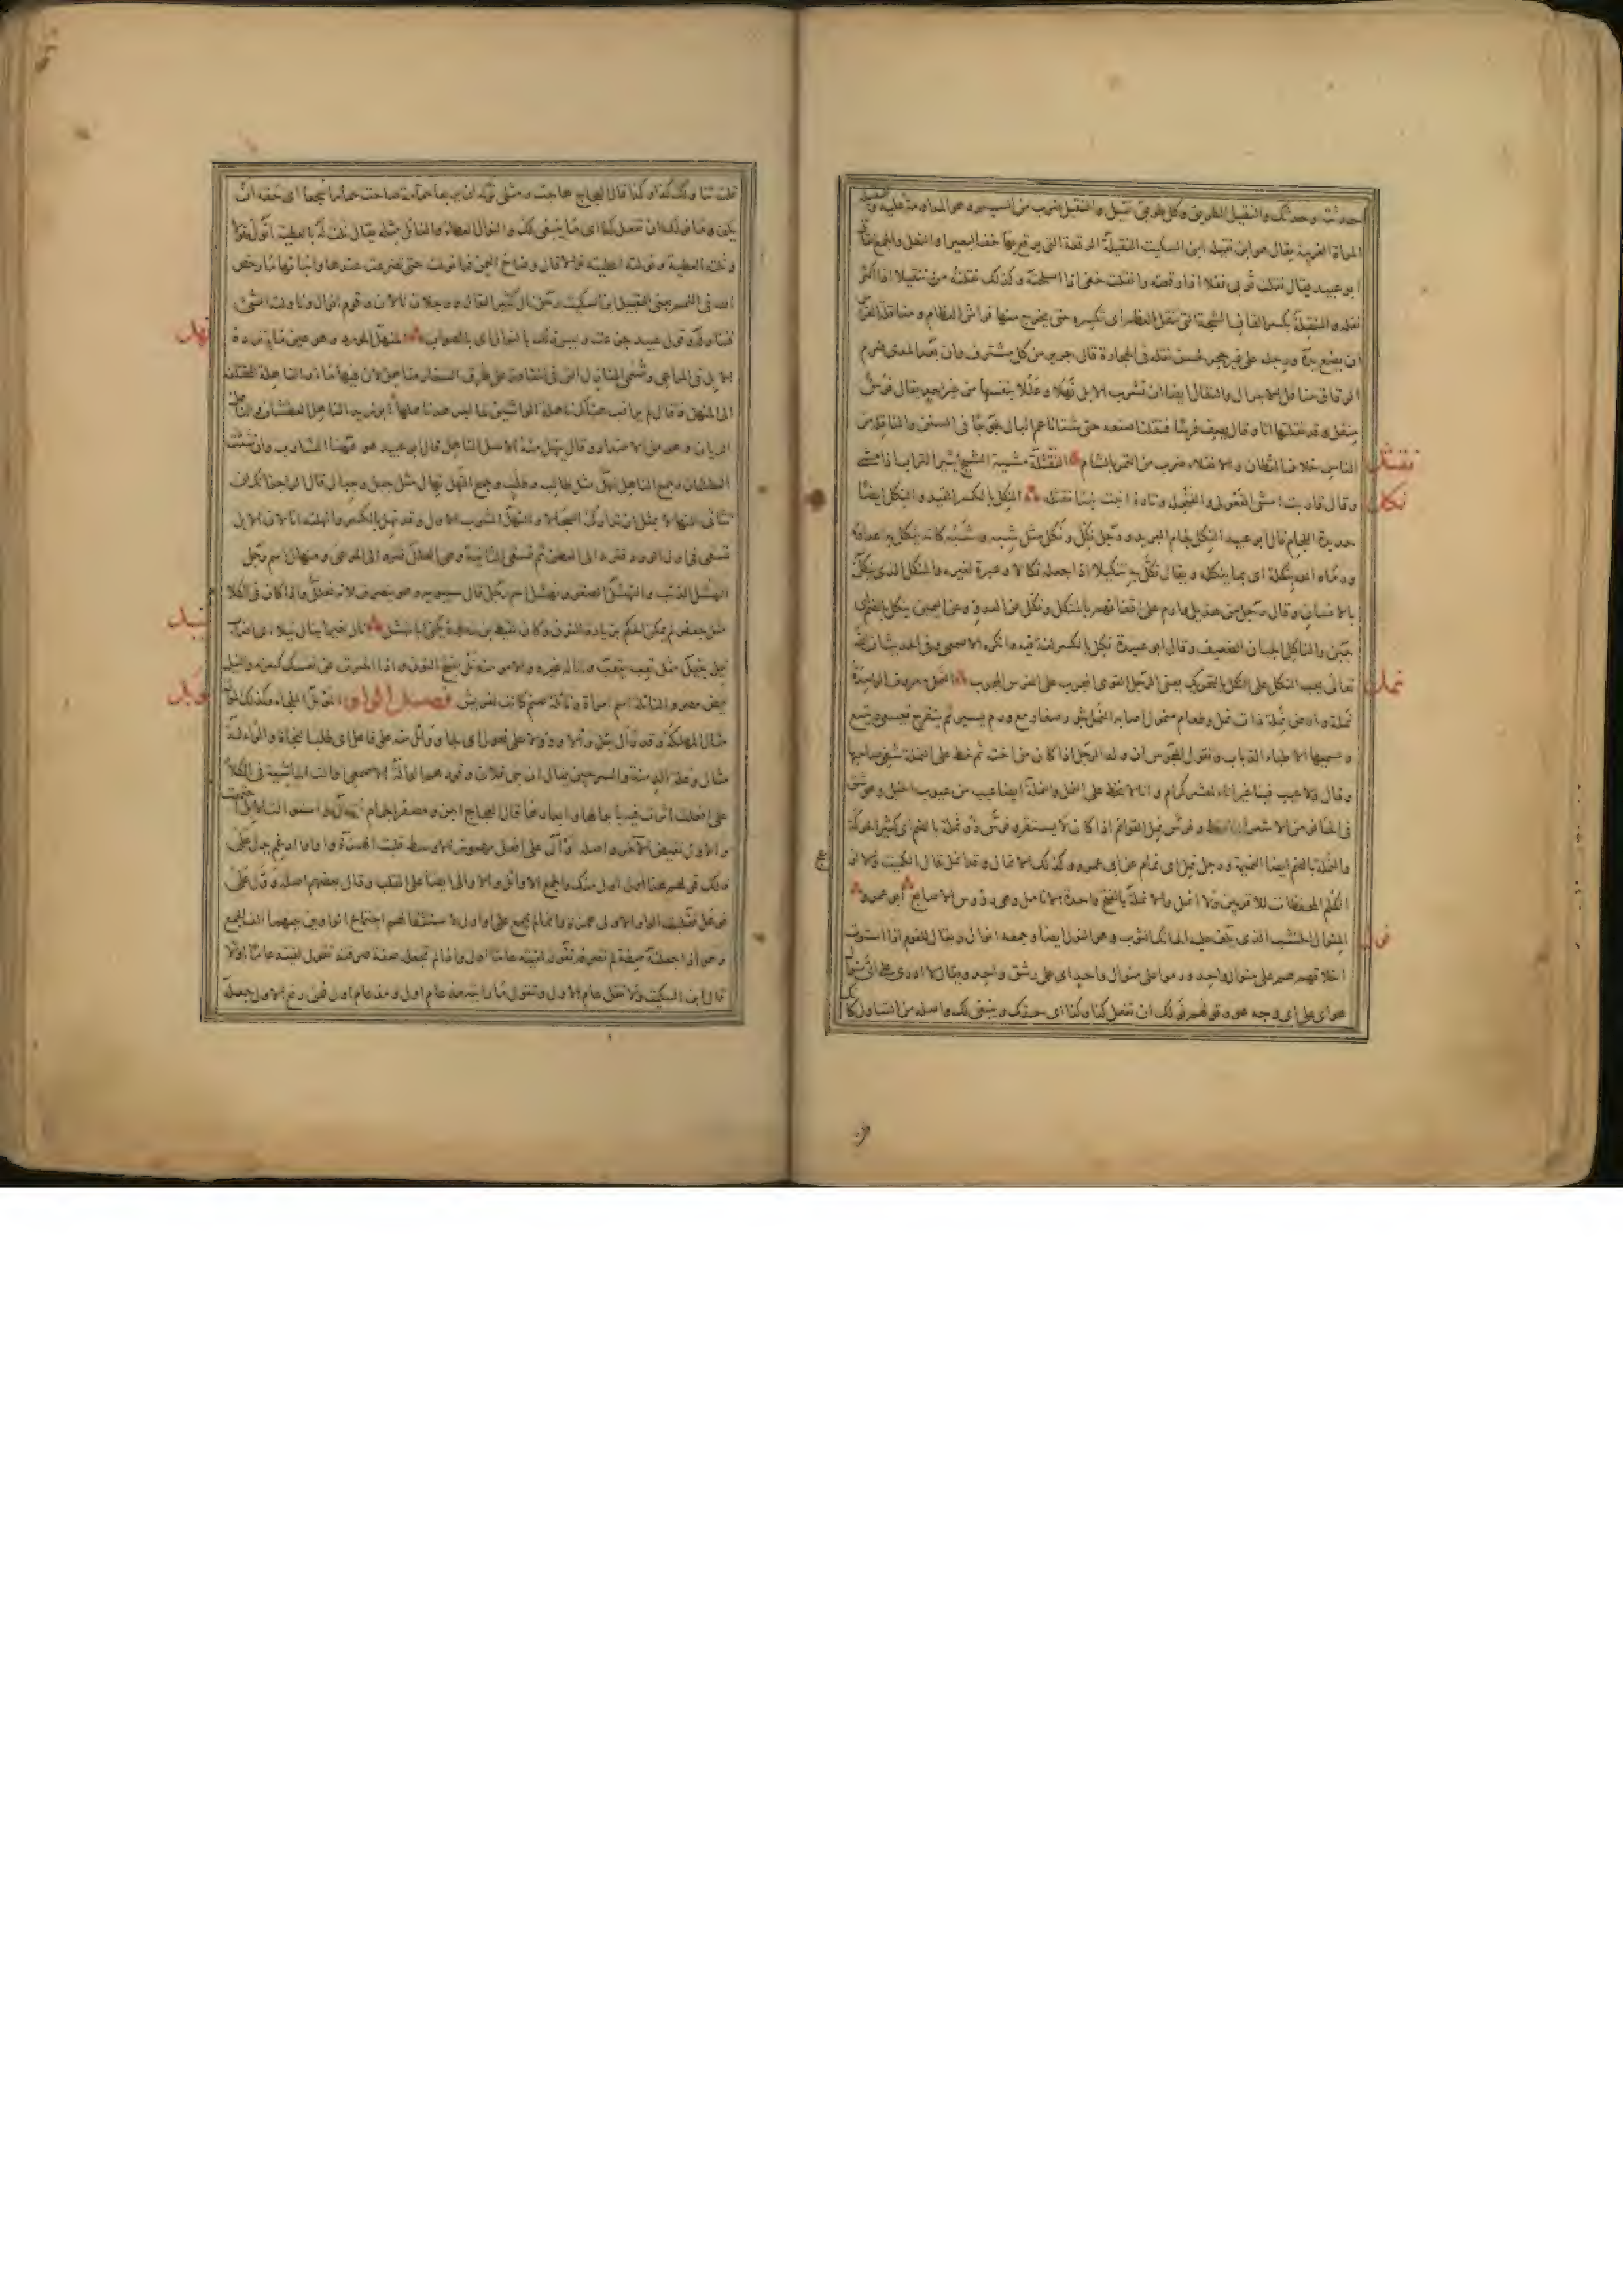 حدوثت وحدثك والنقيل الطريق وكل طريق نقيل والنقيل ضرب من السير وهو المداومة عليه
المراة الغريبة يقال هو ابن نقيلة ابن السكيت النقيلة الرقعة التى يرقع بها خف البعير او النعل والجمع
ابو عبيد يقال نقلت ثوبى نقلا اذا رقعته وانقلت خفى اذا اصلحته وكذلك نقلته تنقيلا اذا اكثر
نقله والمنقلة بكسر القاف الشجة التى تنقل العظم اى تكسره حتى يخرج منها فراش العظام ومناقلة الفرس
ان يضع يده ورجله على غير حجر لحسن نقله فى الحجارة قال جرير من كل مشترف وان بعد المدى ضرم
الرقاق مناقل الاجرال والنقال ايضا ان تشرب الابل نهلا وعللا بنفسها من غير احد يقال فرس
منقل وقد نقلتها انا وقال يصف فرسا فنقلنا صنعه حتى شتا ناعم البال لجوجا فى السنن والناقلة من
الناس خلاف القطان والانقلاء ضرب من التمر بالشام النقثلة مشية الشيخ يثير التراب اذا مشى
نقثل
وقال قاربت امشى القعولى والفنجله وتارة انبث نبثا نقثله النكل بالكسر القيد والنكل ايضا
نكل
حديدة اللجام قال ابو عبيد النكل لجام البريد ورجل نكل ونكل مثل شبه وشبه كانه ينكل به اعداؤه
ورماه الله بنكلة اى بما ينكله ويقال نكل به تنكيلا اذا جعله نكالا وعبرة لغيره والمنكل الذى ينكل
بالانسان وقال رجل من هذيل فارم على اقفائهم بالمنكل ونكل عن العدو وعن اليمين ينكل بالضم اى
جبن والناكل الجبان الضعيف وقال ابو عبيدة نكل بالكسر لغة فيه وانكره الاصمعى وفى الحديث ان الله
تعالى يحب النكل على النكل بالتحريك يعنى الرجل القوى المجرب على الفرس المجرب النمل معروف الواحدة
نمل
نملة وارض نملة ذات نمل وطعام منمول اصابه النمل بثور صغار مع ورم يسير ثم يتقرح فيسعى ويتسع
ويسميها الاطباء الذباب وتقول المجوس ان ولد الرجل اذا كان من اخته ثم خط على النملة شفى صاحبها
وقال ولا عيب فينا غير لمعشر كرام وانا لا نخط على النمل والنملة ايضا عيب من عيوب الخيل وهو شق
فى الحافر من الاشعر وفرس نمل القوائم اذا كان لا يستقر وفرس ذو نملة بالضم اى كثير الحركة
والنملة بالضم ايضا النميمة ورجل نمل اى نمام عن ابى عمرو وكذلك الانمال وقد انمل قال الكميت ولا از
الكلم المحفظات للاقربين ولا انمل والانملة بالفتح واحدة الانامل وهى رؤس الاصابع ابو عمرو
المنوال الخشب الذى يلف عليه الحائك الثوب وهو النول ايضا وجمعه انوال ويقال للقوم اذا استوت
نول
اخلاقهم هم على منوال واحد ورموا على منوال واحد اى على رشق واحد ويقال لا ادرى على اى منوال
هو اى على اى وجه هو وقولهم نولك ان تفعل كذا وكذا اى حقك وينبغى لك واصله من التناول كانك
قلت تناولك كذا وكذا قال العجاج هاجت ومثلى نوله ان يربعا حمامة صاحت حماما سجعا اى حقه ان
يكف وما نولك ان تفعل كذا اى ما ينبغى لك والنوال العطاء والنائل مثله يقال نلت له بالعطية انول نولا
ونلته العطية ونولته اعطيته نوالا قال وضاح اليمن فما نولت حتى تضرعت عندها وانباتها ما رخص
الله فى اللمم يعنى التقبيل ابن السكيت رجل نال كثير النوال ورجلان نالان وقوم انوال وناولته الشىء
فتناوله وقول لبيد وليس ذلك بالنوال اى بالصواب المنهل المورد وهو عين ماء ترده
نهل
الابل فى المراعى وتسمى المنازل التى فى المفاوز على طرق السفار مناهل لان فيها ماء والناهلة المختلفة
الى المنهل وقال لم تراقب هناك ناهلة الواشين لما ابو زيد الناهل العطشان والناهل
الريان وهو من الاضداد وقال ينهل منه الاسل الناهل قال ابو عبيد هو ههنا الشارب وان شئت
العطشان وجمع الناهل نهل مثل طالب وطلب وجمع النهل نهال مثل جبل وجبال قال الراجز انك لن
تثاثى النهالا بمثل ان تدارك السجالا والنهل الشرب الاول وقد نهل بالكسر وانهلته انا لان الابل
تسقى فى اول الورد فترد الى العطن ثم تسقى الثانية وهى العلل فترد الى المرعى ومنهال اسم رجل
النهشل الذئب والنهشل الصقر ونهشل اسم رجل قال سيبويه وهو ينصرف لانه فعلل واذا كان فى الكلا
مثل جعفر لم يمكن الحكم بزيادة النون وكان لقيط بن زرارة يكنى ابا نهشل نال خيرا ينال نيلا اى اصاب
نيل
نيل ينيل مثل تعب يتعب وانا له غيره والامر منه نل بفتح النون واذا اخبرت عن نفسك كسرته والنيل
فيض مصر ونائلة اسم امراة ونائلة صنم كانت لقريش فصل الواو الموئل الملجاء وكذلك الموألة
وئل
مثال المهلكة وقد وأل يئل وألا ووؤولا على فعول اى لجا وواءل منه على فاعل اى طلب النجاة والوألة
مثال وعلة الدمنة والسرجين يقال ان بنى فلان وقودهم الوألة الاصمعى اوألت الماشية فى الكلا
على افعلت اثرت فيه بابوالها وابعارها قال العجاج اجن ومصفر الجمام
والاول نقيض الآخر واصله اوأل على افعل مهموز الاوسط قلبت الهمزة واوا وادغم يدل على
ذلك قولهم هذا اول منك والجمع الاوائل والاوالى ايضا على القلب وقال بعضهم اصله وول على
فوعل فقلبت الواو الاولى همزة وانما لم يجمع على اواول لاستثقالهم اجتماع الواوين بينهما الف الجمع
وهو اذا جعلته صفة لم تصرفه تقول لقيته عاما اول واذا لم تجعله صفة صرفته تقول لقيته عاما اولا
قال ابن السكيت ولا تقل عام الاول وتقول ما رايته مذ عام اول ومذ عام اول فمن رفع الاول جعله